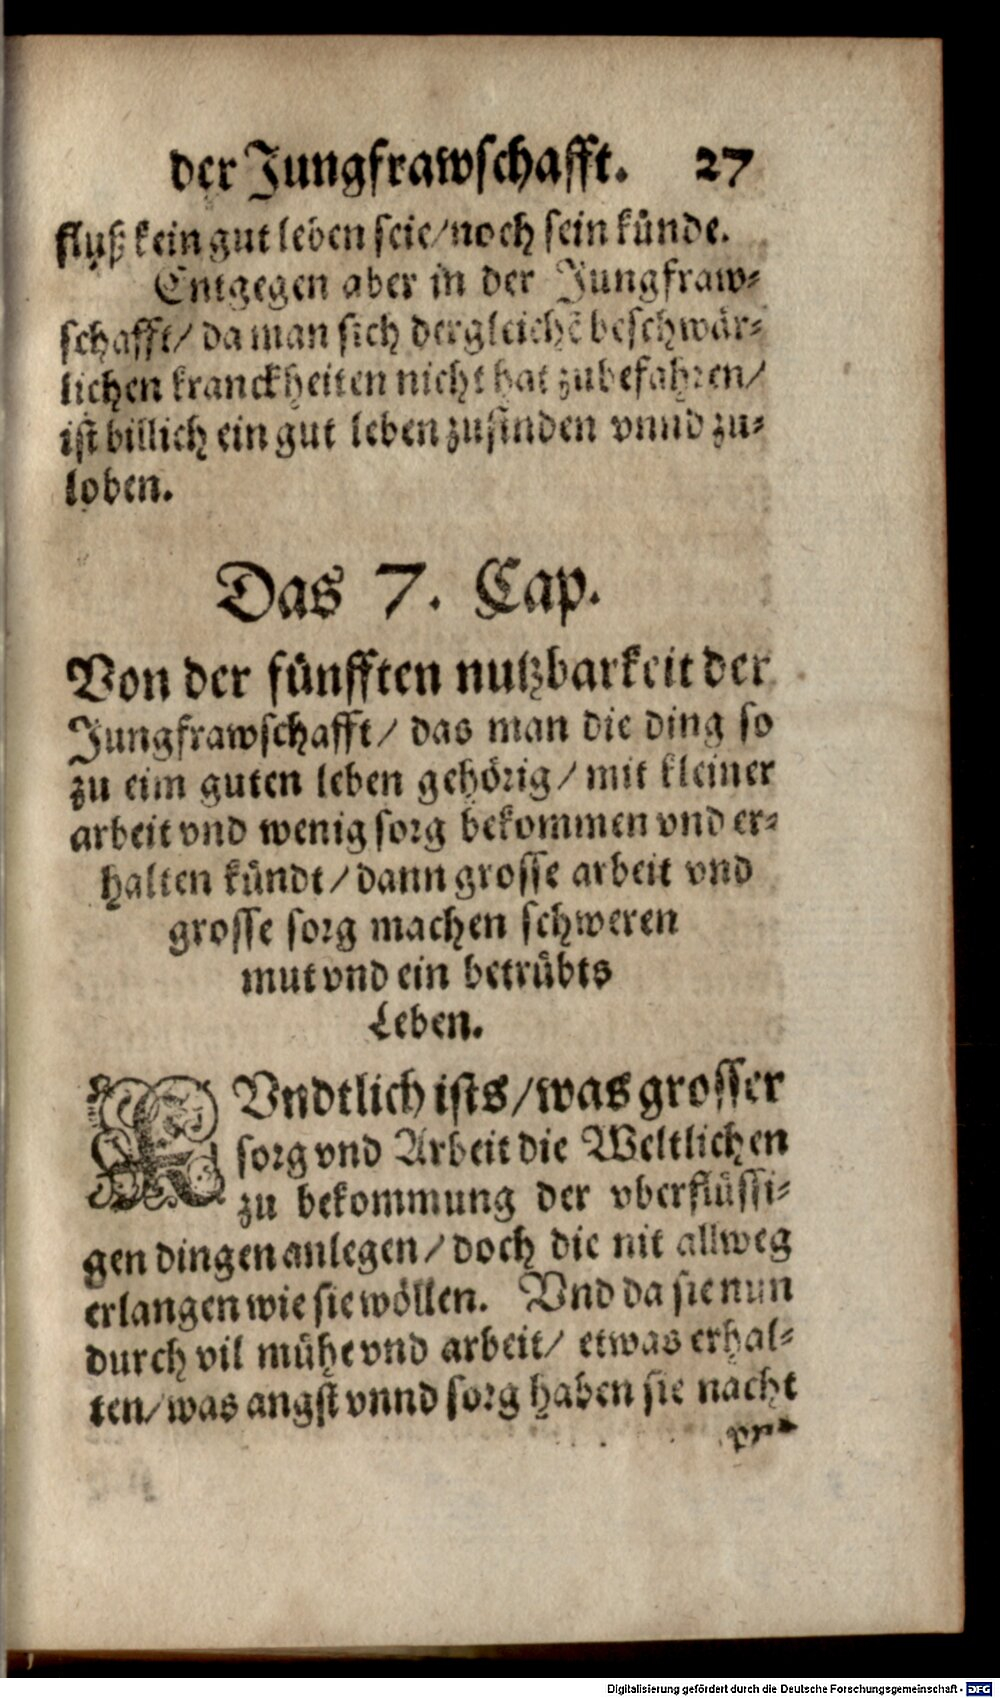 der Jungfrawschafft. 27
fluß kein gut leben seie/noch sein künde.
Entgegen aber in der Jungfraw-
schafft/ da man sich dergleichē beschwär-
lichen kranckheiten nicht hat zubefahren/
ist billich ein gut leben zufinden vnnd zu-
loben.
Das 7. Cap.
Von der fünfften nutzbarkeit der
Jungfrawschafft/ das man die ding so
zu eim guten leben gehörig/ mit kleiner
arbeit vnd wenig sorg bekommen vnd er-
halten kündt/dann grosse arbeit vnd
grosse sorg machen schweren
mut vnd ein betrübts
Leben.
KVndtlich ists/was grosser
sorg vnd Arbeit die Weltlichen
zu bekommung der vberflüssi-
gen dingen anlegen/doch die nit allweg
erlangen wie sie wöllen. Vnd da sie nun
durch vil mühe vnd arbeit/ etwas erhal-
ten/was angst vnnd sorg haben sie nacht
Digitalisierung gefördert durch die Deutsche Forschungsgemeinschaft - DFG